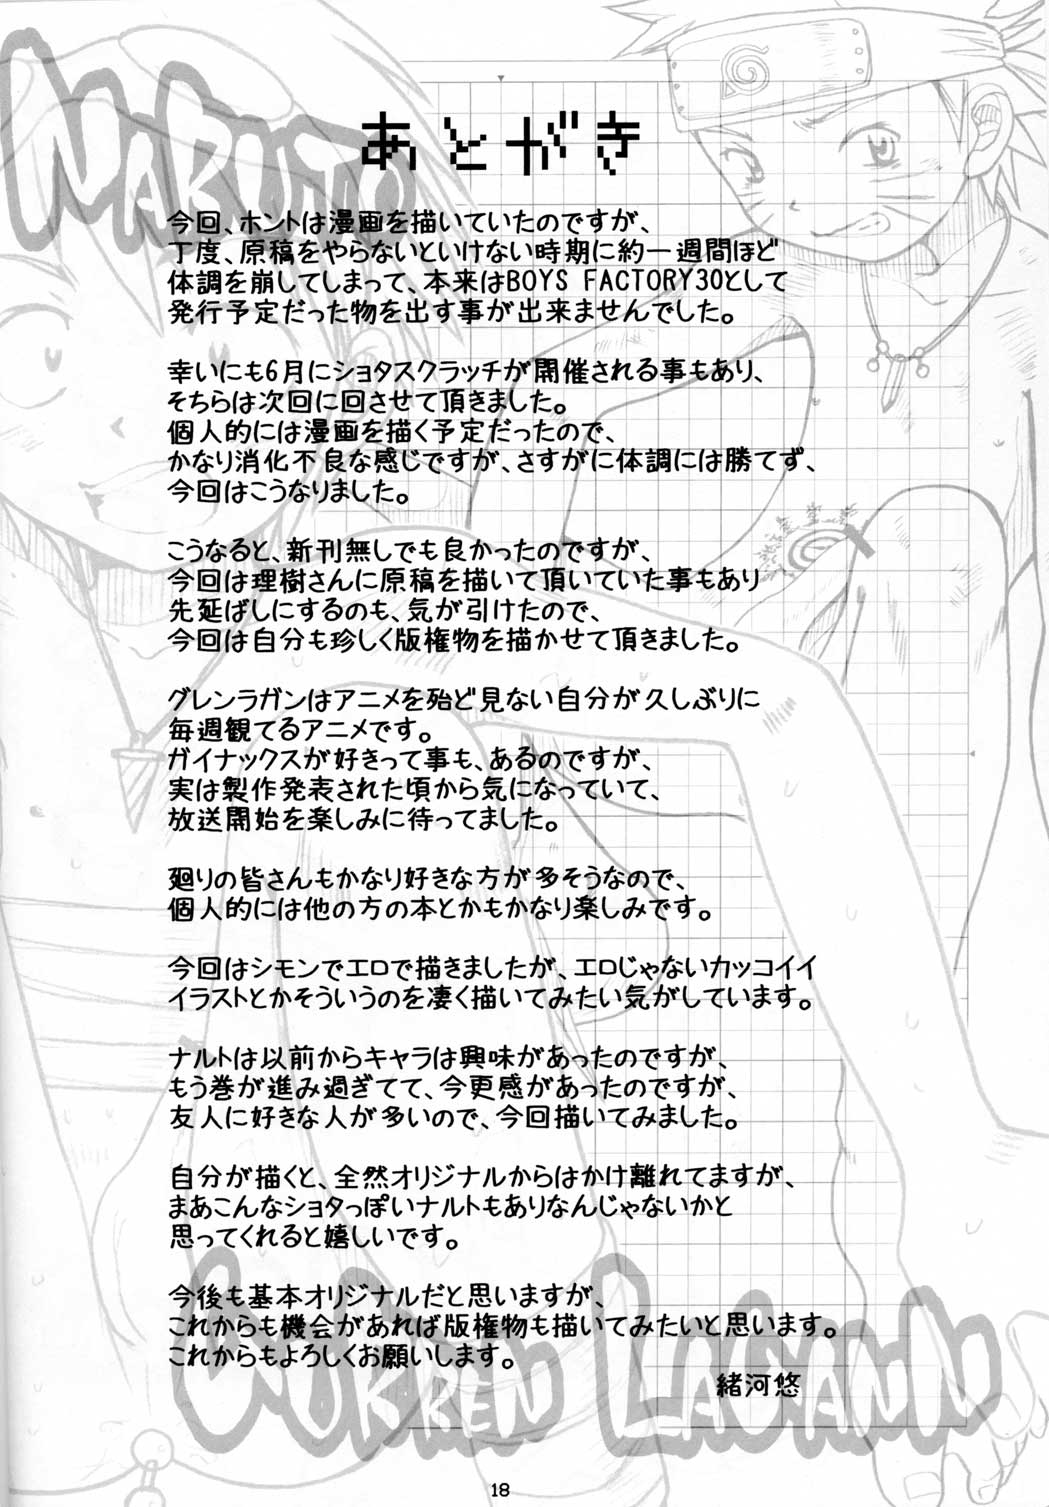 NARUTO
あとがき
今回、ホントは漫画を描いていたのですが、
丁度、原稿をやらないといけない時期に約一週間ほど
体調を崩してしまって、本来はBOYS FACTORY30として
発行予定だった物を出す事が出来ませんでした。
幸いにも6月にショタスクラッチが開催される事もあり、
そちらは次回に回させて頂きました。
個人的には漫画を描く予定だったので、
かなり消化不良な感じですが、さすがに体調には勝てず、
今回はこうなりました。
こうなると、新刊無しでも良かったのですが、
今回は理樹さんに原稿を描いて頂いていた事もあり
先延ばしにするのも、気が引けたので、
今回は自分も珍しく版権物を描かせて頂きました。
グレンラガンはアニメを殆ど見ない自分が久しぶりに
毎週観てるアニメです。
ガイナックスが好きって事も、あるのですが、
実は製作発表された頃から気になっていて、
放送開始を楽しみに待ってました。
廻りの皆さんもかなり好きな方が多そうなので、
個人的には他の方の本とかもかなり楽しみです。
今回はシモンでエロで描きましたが、エロじゃないカッコイイ
イラストとかそういうのを凄く描いてみたい気がしています。
ナルトは以前からキャラは興味があったのですが、
もう巻が進み過ぎてて、今更感があったのですが、
友人に好きな人が多いので、今回描いてみました。
自分が描くと、全然オリジナルからはかけ離れてますが、
まあこんなショタっぽいナルトもありなんじゃないかと
思ってくれると嬉しいです。
今後も基本オリジナルだと思いますが、
これからも機会があれば版権物も描いてみたいと思います。
これからもよろしくお願いします。
緒河悠
GURREN LAGANN
18